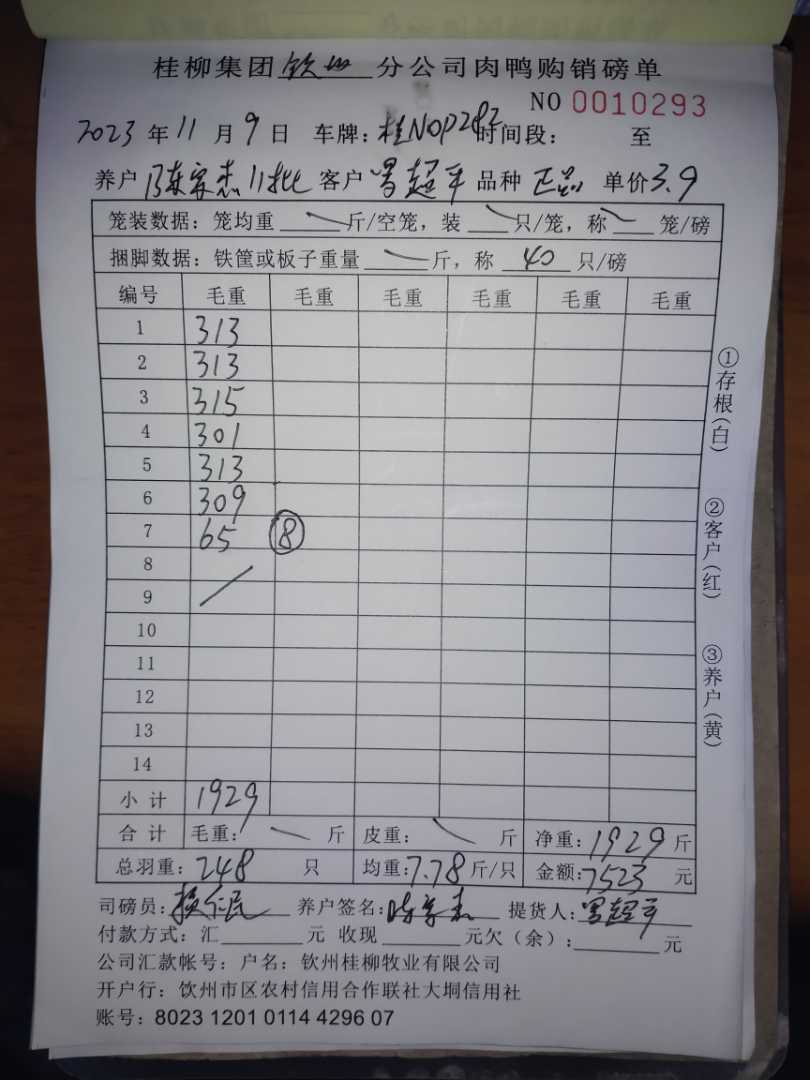 桂柳集团 钦州 分公司肉鸭购销磅单
NO 0010293
2023 年 11 月 9 日 车牌: 桂N0P282 时间段: 至
养户 陈家杰11批 客户 曾超平 品种 正品 单价 3.9
笼装数据: 笼均重 斤/空笼, 装 只/笼, 称 笼/磅
捆脚数据: 铁筐或板子重量 斤, 称 40 只/磅
编号 毛重 毛重 毛重 毛重 毛重 毛重
1 313
2 313
3 315
4 301
5 313
6 309
7 65 ⑧
8
9
10
11
12
13
14
小计 1929
合计 毛重: 斤 皮重: 斤 净重: 1929 斤
总羽重: 248 只 均重: 7.78 斤/只 金额: 7523 元
司磅员: 养户签名: 陈家杰 提货人: 曾超平
付款方式: 汇 元 收现 元欠(余): 元
公司汇款帐号: 户名: 钦州桂柳牧业有限公司
开户行: 钦州市区农村信用合作联社大垌信用社
账号: 8023 1201 0114 4296 07
①存根(白)
②客户(红)
③养户(黄)